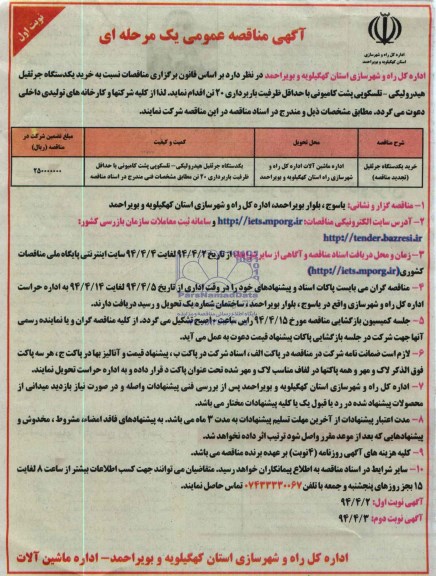 نوبت اول
آگهی مناقصه عمومی یک مرحله ای
اداره کل راه و شهرسازی
استان کهگیلویه و بویراحمد
اداره کل راه و شهرسازی استان کهگیلویه و بویراحمد در نظر دارد بر اساس قانون برگزاری مناقصات نسبت به خرید یکدستگاه جرثقیل
هیدرولیکی - تلسکوپی پشت کامیونی با حداقل ظرفیت باربرداری ۲۰ تن اقدام نماید. لذا از کلیه شرکتها و کارخانه های تولیدی داخلی
دعوت می گردد. مطابق مشخصات ذیل و مندرج در اسناد مناقصه در این مناقصه شرکت نمایند.
شرح مناقصه
محل تحویل
کمیت و کیفیت
مبلغ تضمین شرکت در مناقصه (ریال)
خرید یکدستگاه جرثقیل (تجدید مناقصه)
اداره ماشین آلات اداره کل راه و شهرسازی راه استان کهگیلویه و بویراحمد
یکدستگاه جرثقیل هیدرولیکی - تلسکوپی پشت کامیونی با حداقل ظرفیت باربرداری ۲۰ تن مطابق مشخصات فنی مندرج در اسناد مناقصه
۲۵۰۰۰۰۰۰۰
۱- مناقصه گزار و نشانی: یاسوج، بلوار بویراحمد، اداره کل راه و شهرسازی استان کهگیلویه و بویراحمد
۲- آدرس سایت الکترونیکی مناقصات: http://iets.mporg.ir و سامانه ثبت معاملات سازمان بازرسی کشور:
http://tender.bazresi.ir
۳- زمان و محل دریافت اسناد مناقصه و آگاهی از سایر شرایط: از تاریخ ۹۴/۴/۲ لغایت ۹۴/۴/۴ سایت اینترنتی پایگاه ملی مناقصات
کشوری (http://iets.mporg.ir)
۴- مناقصه گران می بایست پاکات اسناد و پیشنهادهای خود را در وقت اداری از تاریخ ۹۴/۴/۵ لغایت ۹۴/۴/۱۴ به اداره حراست
اداره کل راه و شهرسازی واقع در یاسوج، بلوار بویراحمد، ساختمان شماره یک تحویل و رسید دریافت دارند.
۵- جلسه کمیسیون بازگشایی مناقصه مورخ ۹۴/۴/۱۵ راس ساعت ۱۰ صبح تشکیل می گردد. از کلیه مناقصه گران و یا نماینده رسمی
آنها جهت شرکت در جلسه بازگشایی پاکات پیشنهاد قیمت دعوت به عمل می آید.
۶- لازم است ضمانت نامه شرکت در مناقصه در پاکت الف، اسناد شرکت در پاکت ب، پیشنهاد قیمت و آنالیز بها در پاکت ج، هر سه پاکت
فوق الذکر لاک و مهر و همه پاکتها در لفاف مناسب لاک و مهر شده تحت عنوان پاکت د قرار داده و به اداره حراست تحویل نمایند.
۷- اداره کل راه و شهرسازی استان کهگیلویه و بویراحمد پس از بررسی فنی پیشنهادات واصله و در صورت نیاز بازدید میدانی از
محصولات پیشنهاد شده در رد یا قبول یک یا کلیه پیشنهادات مختار می باشد.
۸- مدت اعتبار پیشنهادات از آخرین مهلت تسلیم پیشنهادات به مدت ۳ ماه می باشد. به پیشنهادهای فاقد امضاء، مشروط، مخدوش و
پیشنهادهایی که بعد از موعد مقرر واصل شود ترتیب اثر داده نخواهد شد.
۹- کلیه هزینه های آگهی روزنامه (۴ نوبت) بر عهده برنده مناقصه می باشد.
۱۰- سایر شرایط در اسناد مناقصه به اطلاع پیمانکاران خواهد رسید. متقاضیان می توانند جهت کسب اطلاعات بیشتر از ساعت ۸ لغایت
۱۵ بجز روزهای پنجشنبه و جمعه با تلفن ۰۷۴۳۳۳۳۰۰۶۷ تماس حاصل نمایند.
آگهی نوبت اول: ۹۴/۴/۲
آگهی نوبت دوم: ۹۴/۴/۳
اداره کل راه و شهرسازی استان کهگیلویه و بویراحمد- اداره ماشین آلات